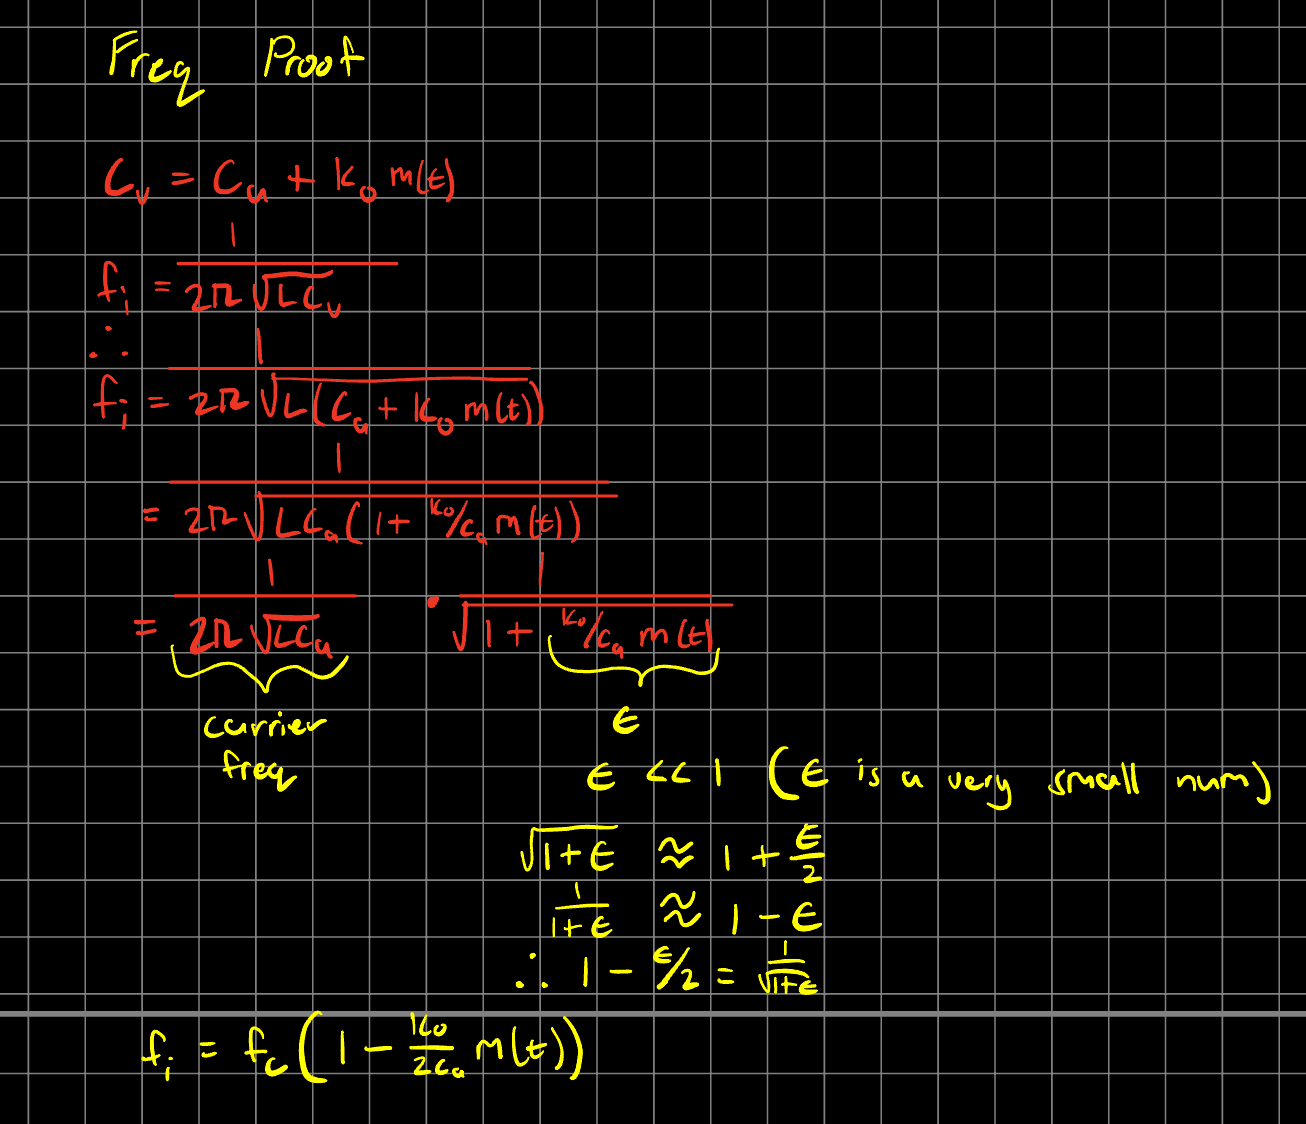 Freq Proof
C_v = C_a + k_0 m(t)
f_i = 1 / (2π √(L C_v))
∴
f_i = 1 / (2π √(L(C_a + k_0 m(t))))
= 1 / (2π √(L C_a (1 + k_0/c_a m(t))))
= 1 / (2π √(L C_a)) · 1 / √(1 + k_0/c_a m(t))
carrier
freq
ϵ
ϵ << 1 (ϵ is a very small num)
√(1+ϵ) ≈ 1 + ϵ/2
1/(1+ϵ) ≈ 1 - ϵ
∴ 1 - ϵ/2 = 1/√(1+ϵ)
f_i = f_c (1 - k_0/(2c_a) m(t))